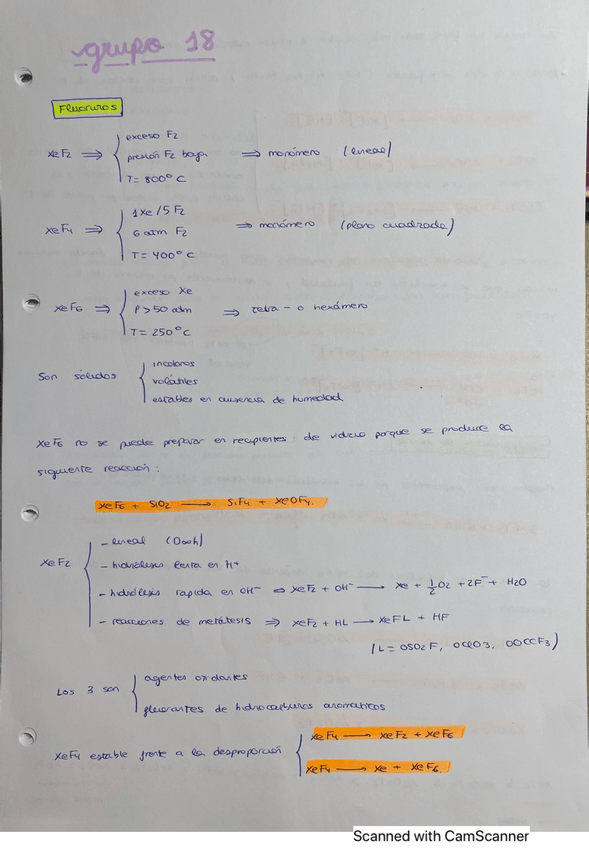 grupo 18
Fluoruros
XeF2 ⇒ { exceso F2
presión F2 baja
T = 800° C
⇒ monómero (lineal)
XeF4 ⇒ { 1Xe/5F2
6 atm F2
T = 400° C
⇒ monómero (plano cuadrada)
XeF6 ⇒ { exceso Xe
P > 50 atm
T = 250°C
⇒ tetra- o hexámero
Son sólidos { incoloros
volátiles
estables en ausencia de humedad
XeF6 no se puede preparar en recipientes de vidrio porque se produce la
siguiente reacción:
XeF6 + SiO2 → SiF4 + XeOF4.
XeF2 { - lineal (D∞h)
- hidrólisis lenta en H+
- hidrólisis rapida en OH- ⇒ XeF2 + OH- → Xe + 1/2 O2 + 2F- + H2O
- reacciones de metátesis ⇒ XeF2 + HL → XeFL + HF
(L = OSO2F, OClO3, OOCCF3)
Los 3 son { agentes oxidantes
fluorantes de hidrocarburos aromáticos
XeF4 estable frente a la desproporción { XeF4 → XeF2 + XeF6
XeF4 → Xe + XeF6.
Scanned with CamScanner